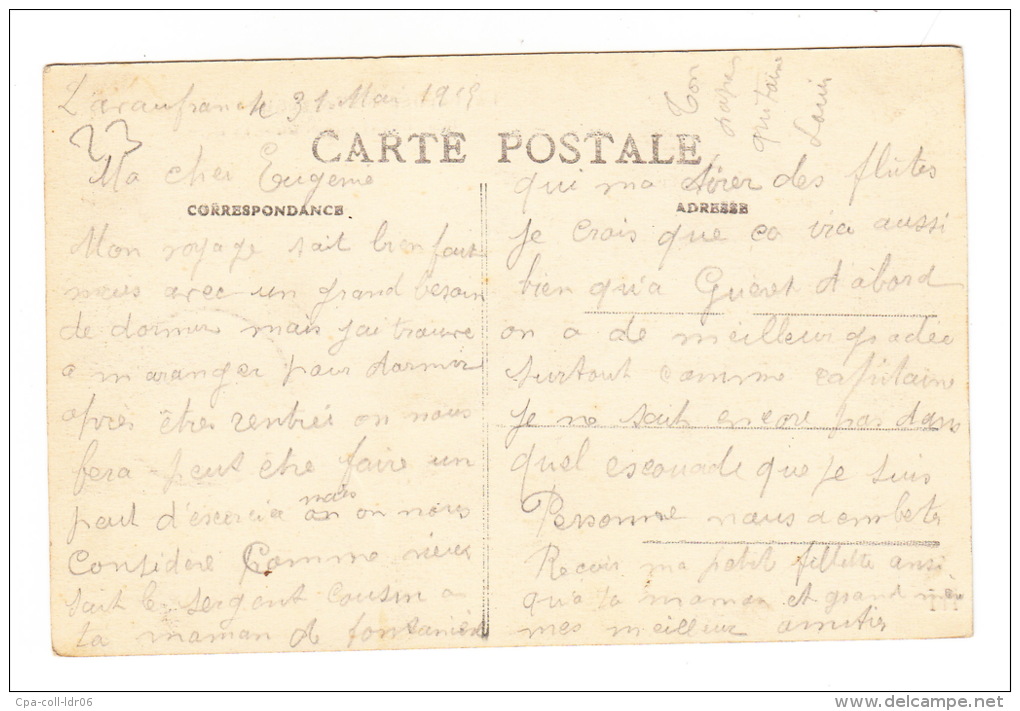 Lavaufranche 31 Mai 1915
23
CARTE POSTALE
Ma cher Eugenie
CORRESPONDANCE
Mon voyage sait bien fait
mais avec un grand besoin
de dormir mais jai trouvé
a m aranger pour dormir
apres êtres rentrés on nous
fera peut être faire un
peut d'exercice mais
on on nous
Considere Comme
sait le sergent cousin a
ta maman de fontanière
Ton
papa
qui t'aime
Louis
qui ma tirer des flutes
ADRESSE
Je crois que ca ira aussi
bien qu'a Gueret d'abord
on a de meilleur gradée
surtout comme capitaine
Je ne sait encore pas dans
quel escouade que je suis
Personne nous dembete
Recois ma petit fillette ansi
qu'a ta maman et grand mère
mes meilleur amitis
Cpa-coll-ldr06
www.delcampe.net